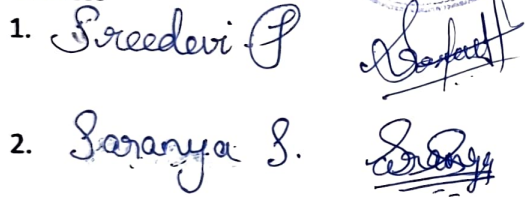 1. Sreedevi P
2. Saranya S.